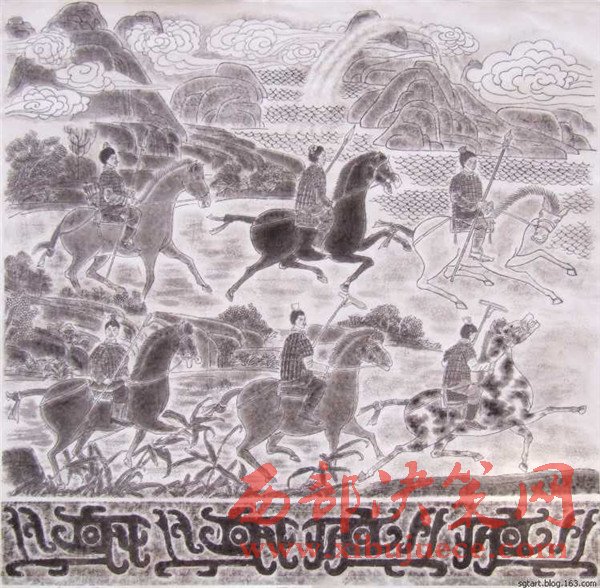 西部决策网
www.xibujuece.com
sgtart.blog.163.com